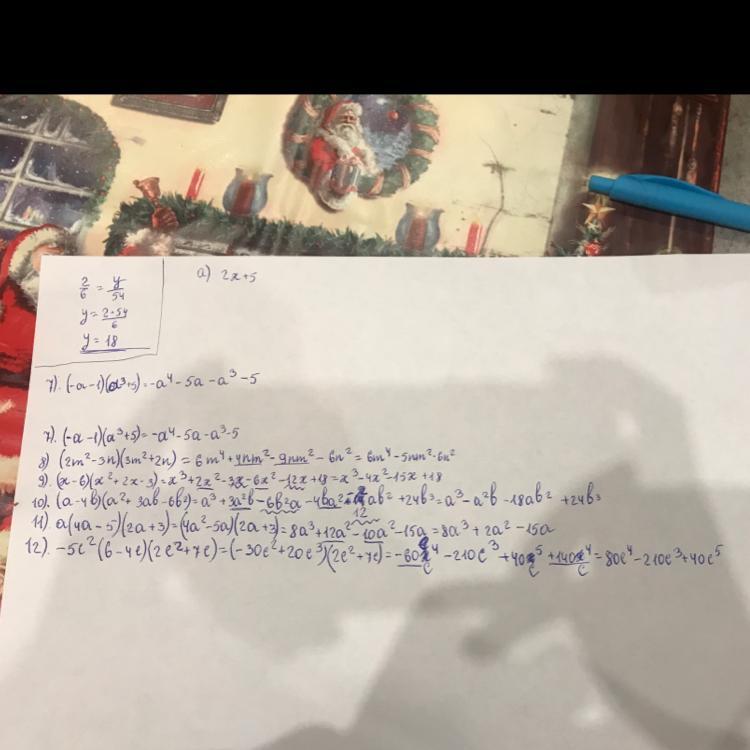 2/6 = y/54
y = 2·54/6
y = 18
a) 2x+5
7). (-a-1)(a³+5)=-a⁴-5a-a³-5
7). (-a-1)(a³+5)=-a⁴-5a-a³-5
8) (2m²-3n)(3m²+2n)=6m⁴+4nm²-9nm²-6n²=6m⁴-5nm²-6n²
9). (x-6)(x²+2x-3)=x³+2x²-3x-6x²-12x+18=x³-4x²-15x+18
10). (a-4b)(a²+3ab-6b²)=a³+3a²b-6b²a-4ba²-12ab²+24b³=a³-a²b-18ab²+24b³
11) a(4a-5)(2a+3)=(4a²-5a)(2a+3)=8a³+12a²-10a²-15a=8a³+2a²-15a
12). -5c²(6-4c)(2c²+7c)=(-30c²+20c³)(2c²+7c)=-60c⁴-210c³+40c⁵+140c⁴=80c⁴-210c³+40c⁵